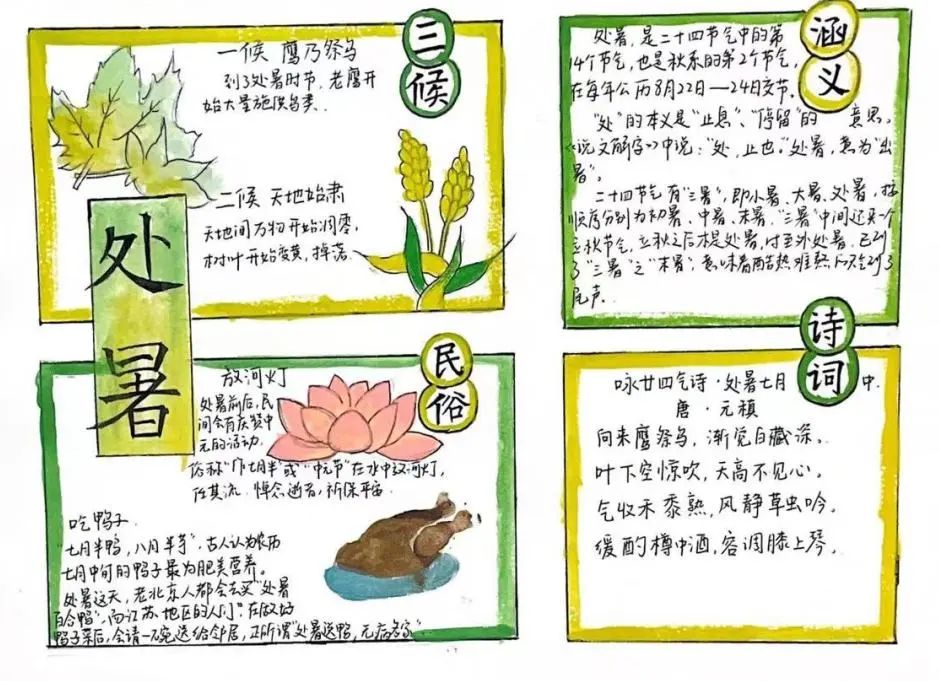 处暑
三候
一候 鹰乃祭鸟
到了处暑时节,老鹰开
始大量施供鸟类.
二候 天地始肃
天地间万物开始凋零.
树叶开始变黄,掉落.
涵义
处暑,是二十四节气中的第
14个节气,也是秋季的第2个节气,
在每年公历8月22日—24日交节.
"处"的本义是"止息"、"停留"的 意思。
《说文解字》中说:"处,止也."处暑,意为"出
暑"。
二十四节气有"三暑",即小暑、大暑、处暑,按
顺序分别为初暑、中暑、末暑,"三暑"中间还夹一个
立秋节气,立秋之后才是处暑,时至处暑,已到
了"三暑"之"末暑",意味着酷热难熬的天气到了
尾声.
民俗
放河灯
处暑前后,民
间会有庆赞中
元的活动.
俗称"作七月半"或"中元节"在水中放河灯,
任其流.悼念逝者,祈保平安.
吃鸭子
"七月半鸭,八月半芋",古人认为农历
七月中旬的鸭子最为肥美营养。
处暑这天,老北京人都会去买"处暑
百合鸭",而江苏地区的人们:在做好
鸭子菜后,会请一碗送给邻居,正所谓"处暑送鸭,无病各家"
诗词
咏廿四气诗·处暑七月中.
唐·元稹
向来鹰祭鸟,渐觉白藏深。
叶下空惊吹,天高不见心。
气收禾黍熟,风静草虫吟。
缓酌樽中酒,容调膝上琴。